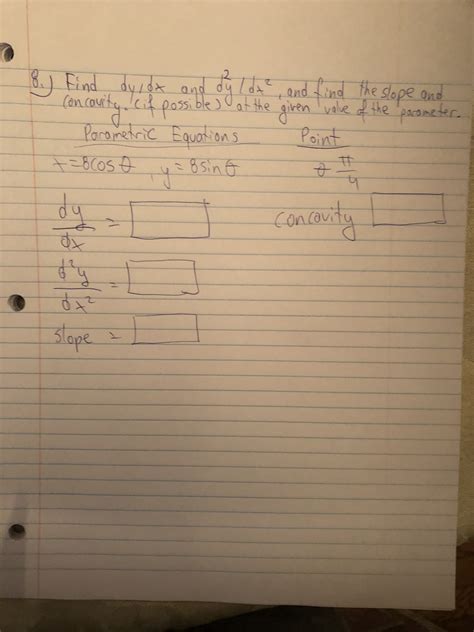 8.) Find dy/dx and d²y/dx², and find the slope and
concavity. (if possible) at the given value of the parameter.
Parametric Equations Point
x=8cosθ, y=8sinθ θ π/4
dy/dx = concavity
d²y/dx² =
slope =